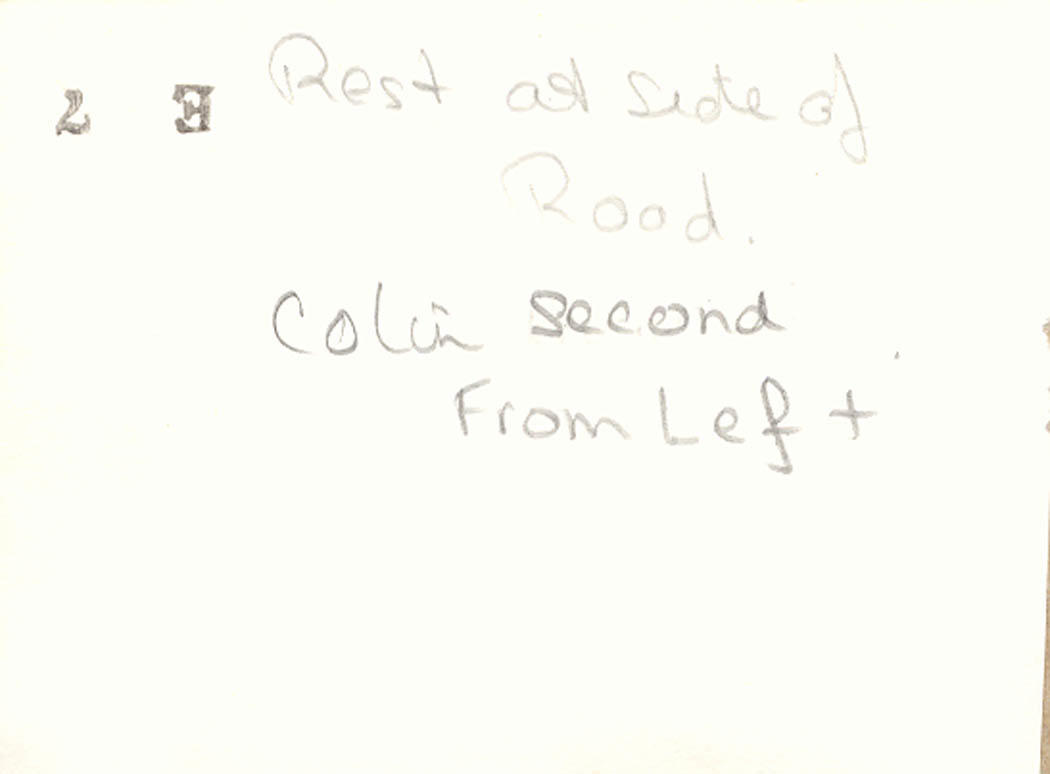 2 E Rest at Side of
Road.
Colin second
From Left